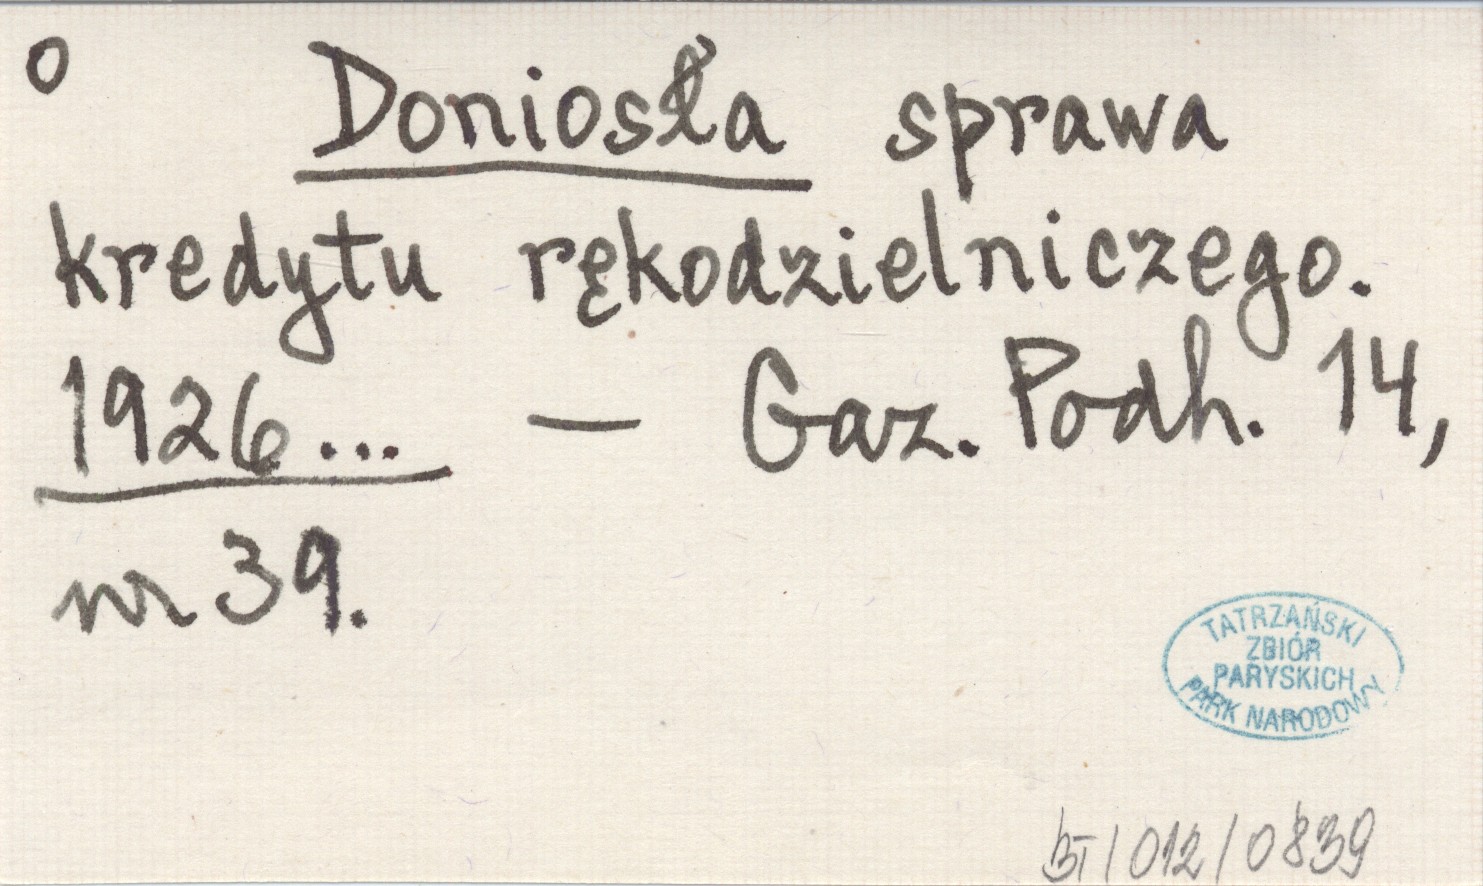 o Doniosła sprawa
kredytu rękodzielniczego.
1926... — Gaz. Podh. 14,
nr 39.
TATRZAŃSKI
ZBIÓR
PARYSKICH
PARK NARODOWY
BT/012/0839